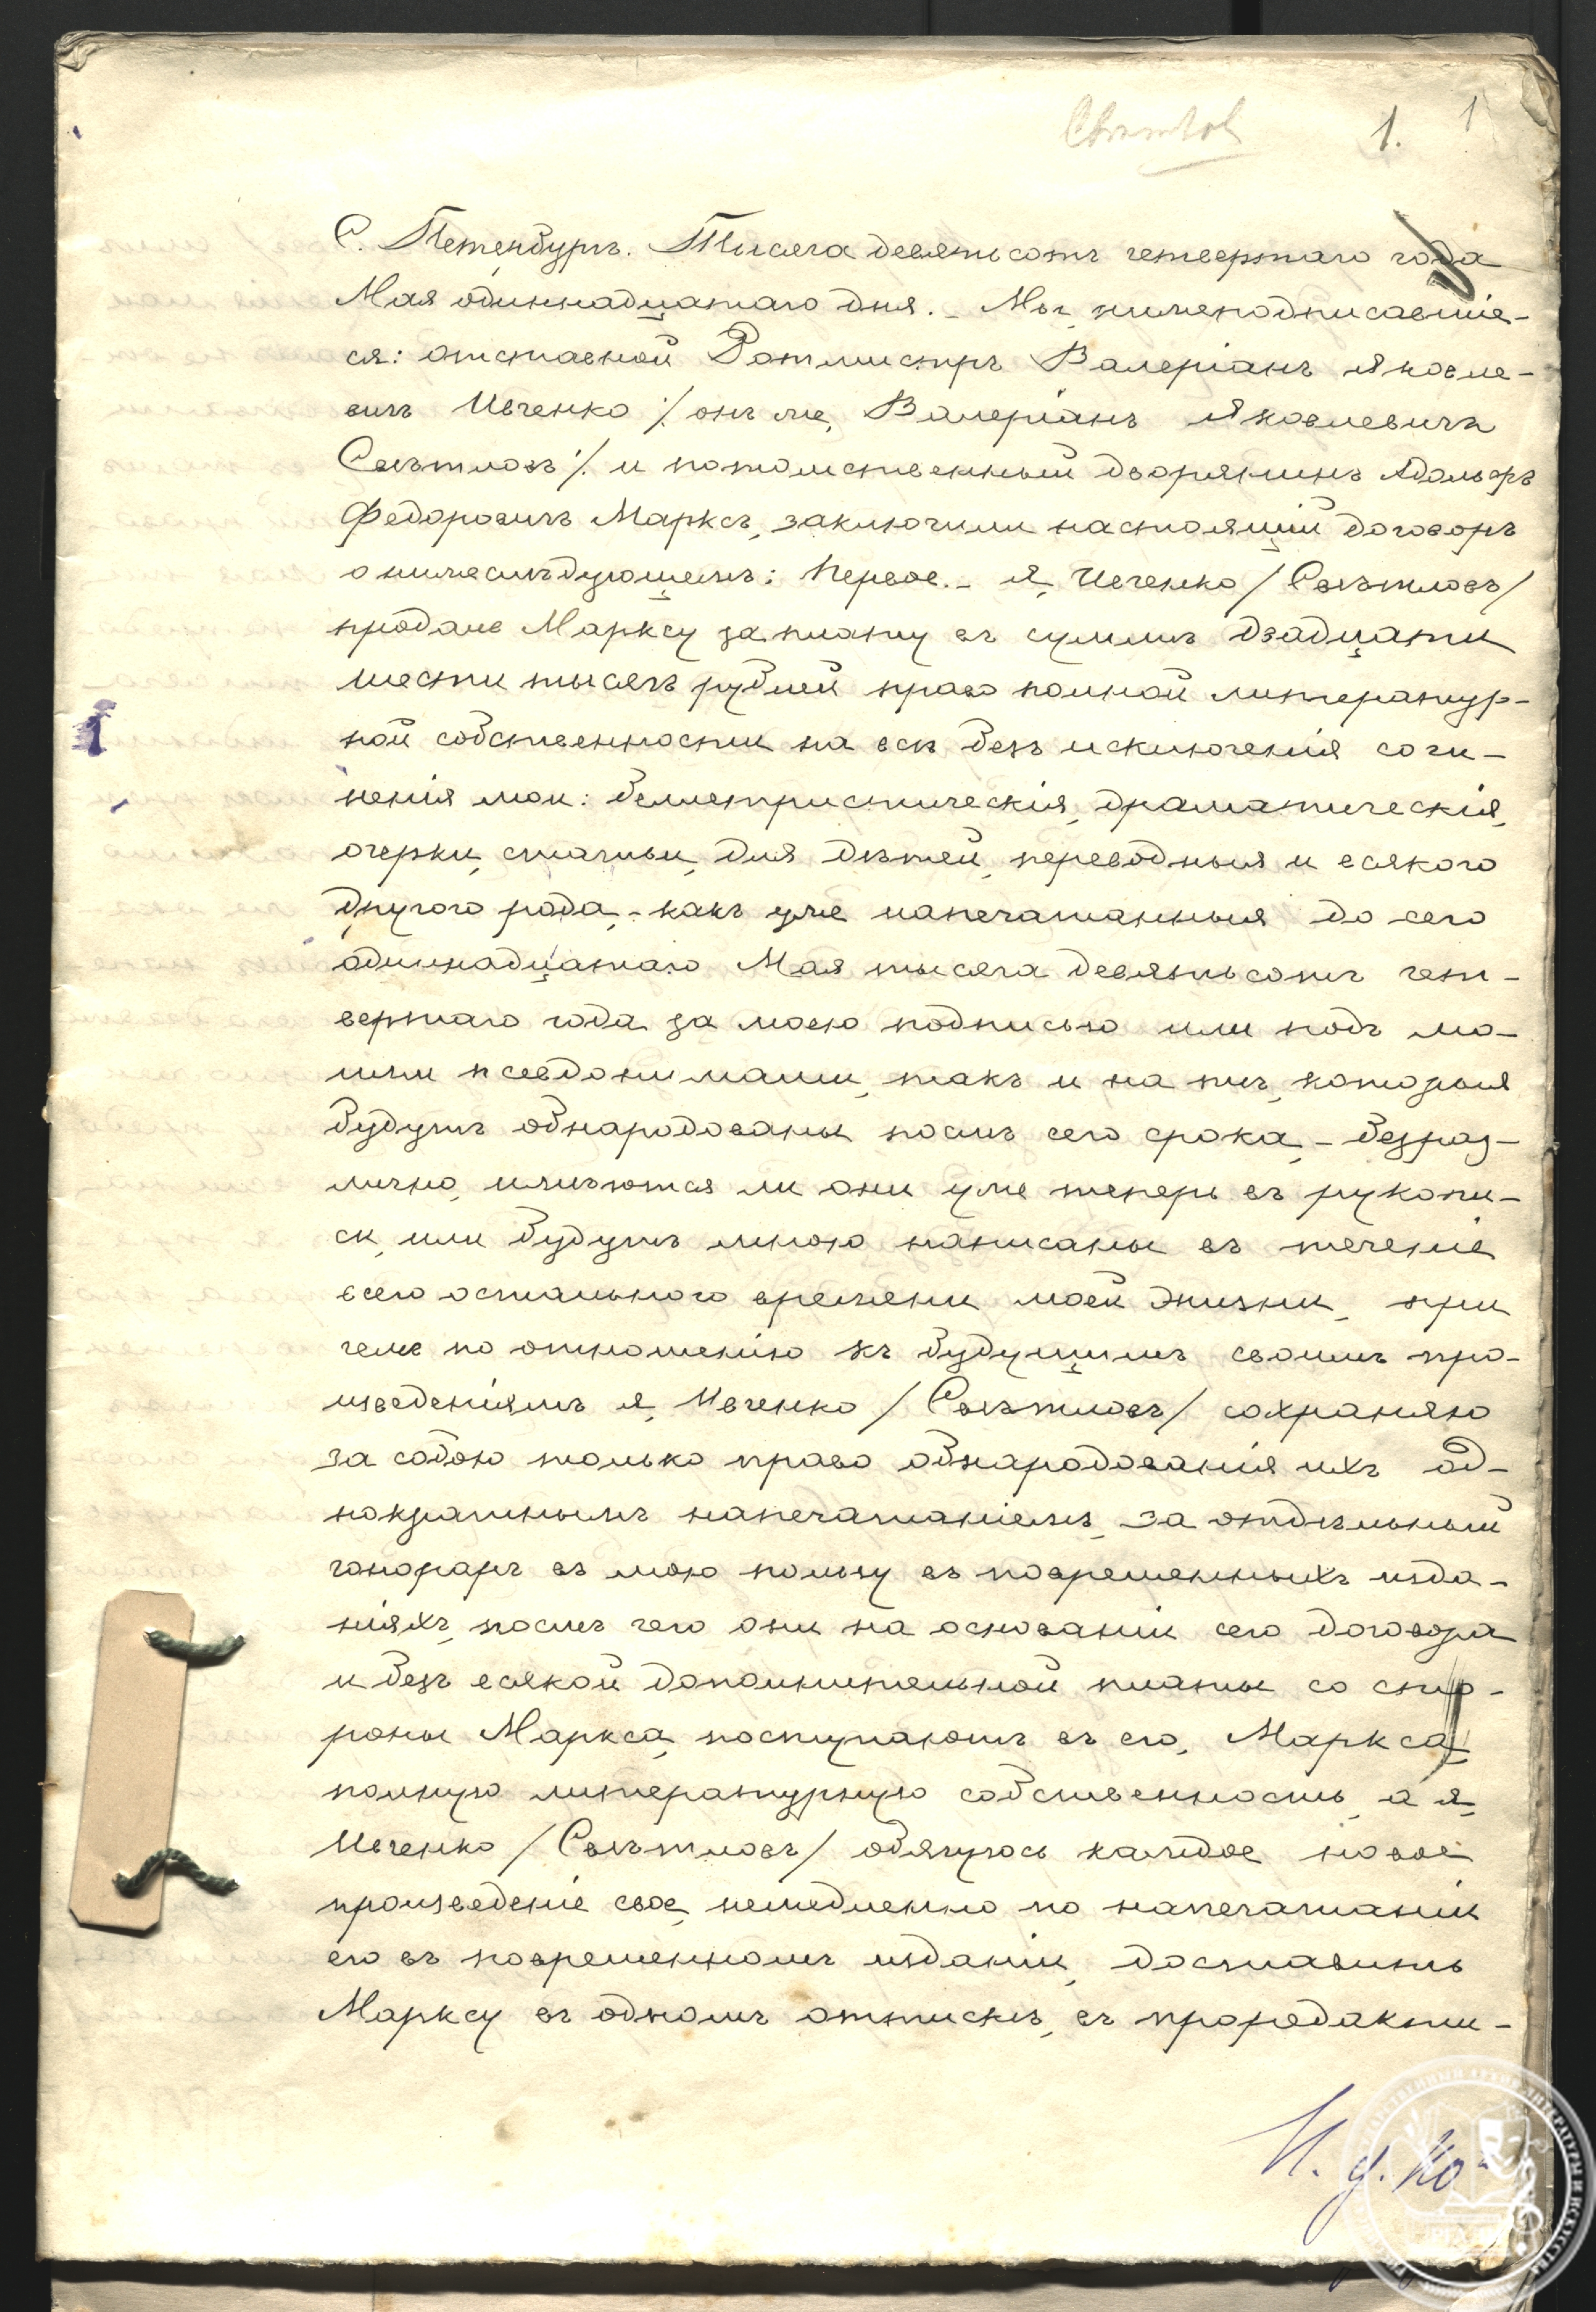 1. 1
С. Петербургъ. Тысяча девятьсотъ четвертаго года
Мая одиннадцатаго дня. – Мы, нижеподписавшіе-
ся: отставной Ротмистръ Валеріанъ Яковле-
вичъ Ивченко /: онъ же, Валеріанъ Яковлевичъ
Свѣтловъ :/ и потомственный дворянинъ Адольфъ
Федоровичъ Марксъ, заключили настоящій договоръ
о нижеслѣдующемъ: Первое. – Я, Ивченко /Свѣтловъ/
продалъ Марксу за плату въ суммѣ двадцати
шести тысячъ рублей право полной литератур-
ной собственности на всѣ безъ исключенія сочи-
ненія мои: беллетристическія, драматическія,
очерки, статьи, для дѣтей, переводныя и всякого
другого рода, – какъ уже напечатанныя до сего
одиннадцатаго Мая тысяча девятьсотъ чет-
вертаго года за моею подписью или подъ мо-
ими псевдонимами, такъ и на тѣ, которыя
будутъ обнародованы послѣ сего срока, – безраз-
лично, имѣются ли они уже теперь въ рукопи-
си, или будутъ мною написаны въ теченіе
всего остального времени моей жизни, при
чемъ по отношенію къ будущимъ своимъ про-
изведеніямъ я, Ивченко /Свѣтловъ/ сохраняю
за собою только право обнародованія ихъ од-
нократнымъ напечатаніемъ, за отдѣльный
гонораръ въ мою пользу въ повременныхъ изда-
ніяхъ, послѣ чего они на основаніи сего договора
и безъ всякой дополнительной платы со сто-
роны Маркса, поступаютъ въ его, Маркса,
полную литературную собственность, а я,
Ивченко /Свѣтловъ/ обязуюсь каждое новое
произведеніе свое, немедленно по напечатаніи
его въ повременномъ изданіи, доставить
Марксу въ одномъ оттискѣ, въ проредакти-